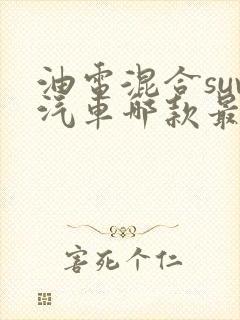 油电混合suv
汽车哪款最
害死个仁